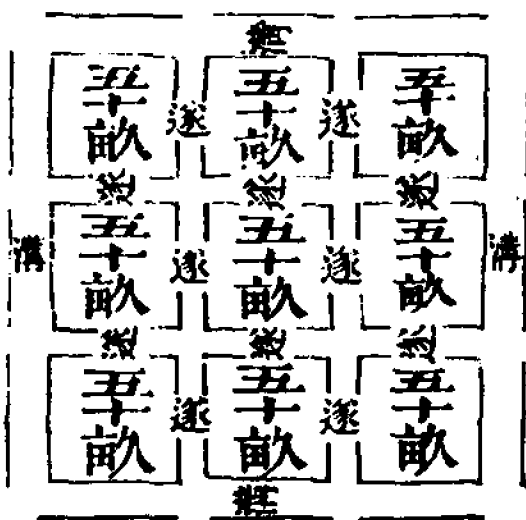 溝
五十畝 遂 五十畝 遂 五十畝
遂 遂 遂
溝 五十畝 遂 五十畝 遂 五十畝 溝
遂 遂 遂
五十畝 遂 五十畝 遂 五十畝
溝